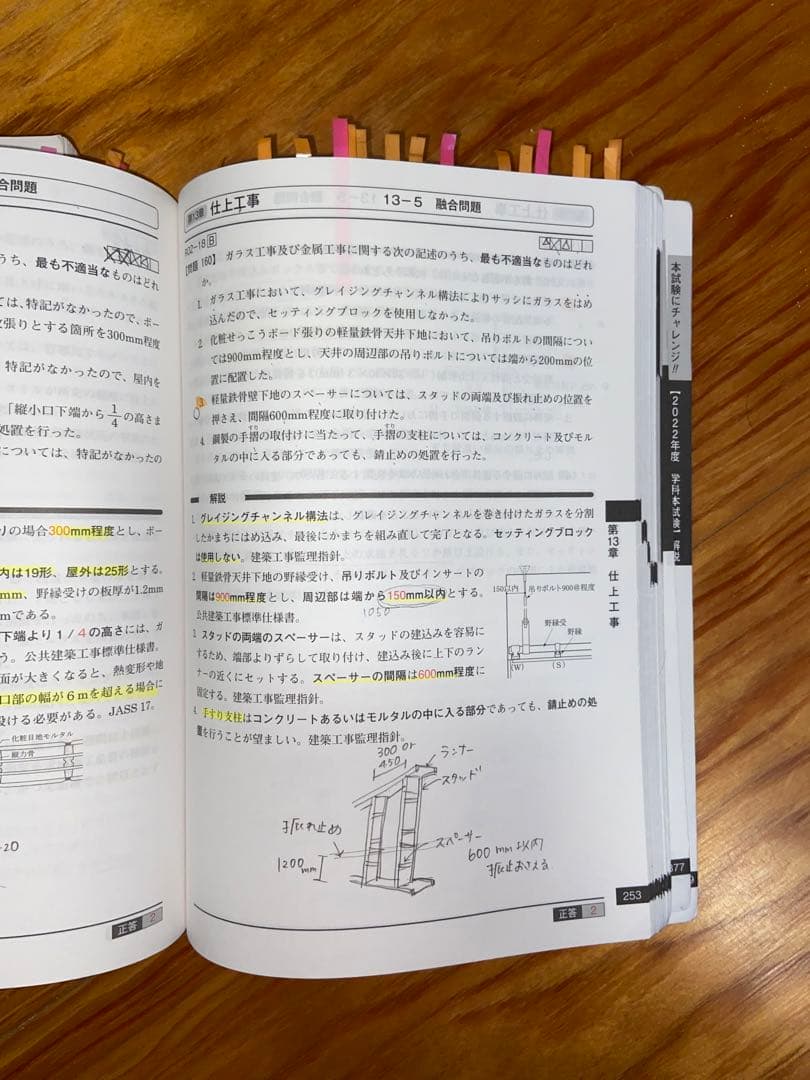 合問題
うち、最も不適当なものはどれ
ては、特記がなかったので、ボー
張りとする箇所を300mm程度
特記がなかったので、屋内を
「縦小口下端から1/4の高さま
処置を行った。
については、特記がなかったの
りの場合300mm程度とし、ボー
内は19形、屋外は25形とする。
mm、野縁受けの板厚が1.2mm
mである。
下端より1/4の高さには、ガ
う。公共建築工事標準仕様書。
面が大きくなると、熱変形や地
口部の幅が6mを超える場合に
設ける必要がある。JASS 17.
化粧目地モルタル
縦力骨
-20
正答 2
第13章 仕上工事
13-5 融合問題
R02-18 B
【問題 160】 ガラス工事及び金属工事に関する次の記述のうち、最も不適当なものはどれ
か。
1. ガラス工事において、グレイジングチャンネル構法によりサッシにガラスをはめ
込んだので、セッティングブロックを使用しなかった。
2. 化粧せっこうボード張りの軽量鉄骨天井下地において、吊りボルトの間隔につい
ては900mm程度とし、天井の周辺部の吊りボルトについては端から200mmの位
置に配置した。
3. 軽量鉄骨壁下地のスペーサーについては、スタッドの両端及び振れ止めの位置を
押さえ、間隔600mm程度に取り付けた。
4. 鋼製の手摺の取付けに当たって、手摺の支柱については、コンクリート及びモル
タルの中に入る部分であっても、錆止めの処置を行った。
解説
1. グレイジングチャンネル構法は、グレイジングチャンネルを巻き付けたガラスを分割
したかまちにはめ込み、最後にかまちを組み直して完了となる。セッティングブロック
は使用しない。建築工事監理指針。
2. 軽量鉄骨天井下地の野縁受け、吊りボルト及びインサートの
間隔は900mm程度とし、周辺部は端から150mm以内とする。
1050
公共建築工事標準仕様書。
3. スタッドの両端のスペーサーは、スタッドの建込みを容易に
するため、端部よりずらして取り付け、建込み後に上下のラン
ナーの近くにセットする。スペーサーの間隔は600mm程度に
固定する。建築工事監理指針。
4. 手すり支柱はコンクリートあるいはモルタルの中に入る部分であっても、錆止めの処
置を行うことが望ましい。建築工事監理指針。
150以内
吊りボルト900@程度
野縁受
野縁
(W) (S)
300 or
450
ランナー
スタッド
振れ止め
スペーサー
1200mm
600mm以内
振止おさえる
正答 2
253
第13章 仕上工事
本試験にチャレンジ!!
【2022年度 学科本試験】解説
677